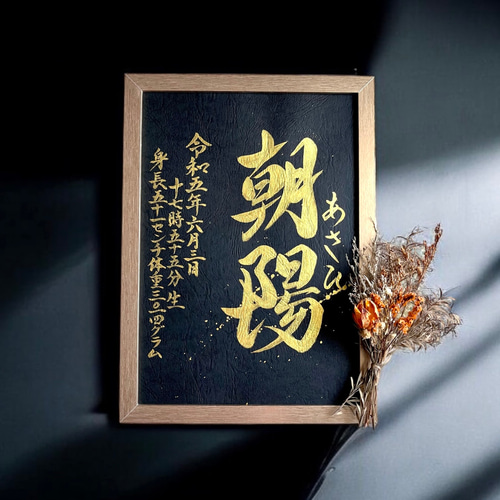 朝陽
あさひ
令和五年六月三日
十七時五十五分生
身長五十一センチ体重三〇一四グラム